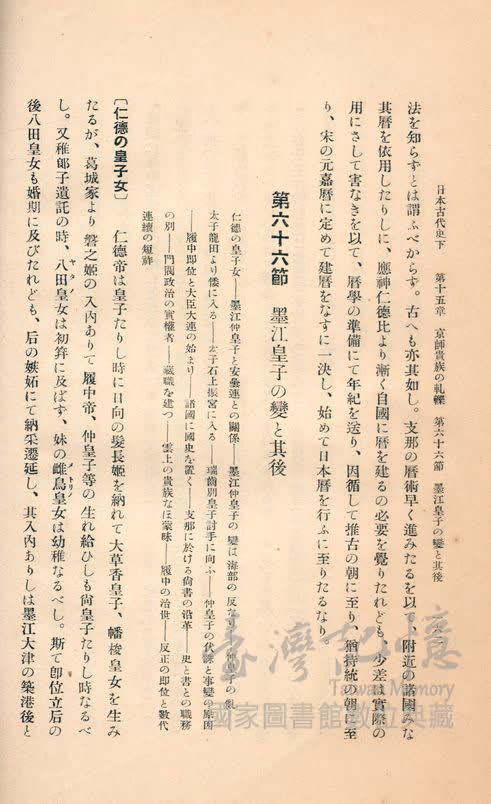 日本古代史下　第十五章　京師貴族の軋轢　第六十六節　墨江皇子の變と其後
法を知らずとは謂ふべからず。古へも亦其如し。支那の曆術早く進みたるを以て、附近の諸國みな
其曆を依用したりしに、應神仁德比より漸く自國に曆を建るの必要を覺りたれども、少差は實際の
用にさして害なきを以て、曆學の準備にて年紀を送り、因循して推古の朝に至り、猶持統の朝に至
り、宋の元嘉曆に定めて建曆をなすに一決し、始めて日本曆を行ふに至りたるなり。
第六十六節　墨江皇子の變と其後
仁德の皇子女――墨江仲皇子と安曇連との關係――墨江仲皇子の變は海部の反なり　皇子の亂
太子龍田より倭に入る――太子石上振宮に入る――瑞齒別皇子討手に向ふ――仲皇子の伏誅と事變の原因
――履中卽位と大臣大連の始まり――諸國に國史を置く――支那に於ける尙書の沿革　史と書との職務
の別――門閥政治の實權者――藏職を建つ――雲上の貴族なほ蒙昧――履中の治世――反正の卽位と數代
連續の短祚
〔仁德の皇子女〕　仁德帝は皇子たりし時に日向の髮長姬を納れて大草香皇子、幡梭皇女を生み
たるが、葛城家より磐之姬の入內ありて履中帝、仲皇子等の生れ給ひしも尙皇子たりし時なるべ
し。又稚郞子遺託の時、八田皇女は初筓に及ばず、妹の雌鳥皇女は幼稚なるべし。斯て卽位立后の
後八田皇女も婚期に及びたれども、后の嫉妬にて納采遷延し、其入內ありしは墨江大津の築港後と
ヤタノ
メトリ
臺灣記憶
Taiwan Memory
國家圖書館數位典藏